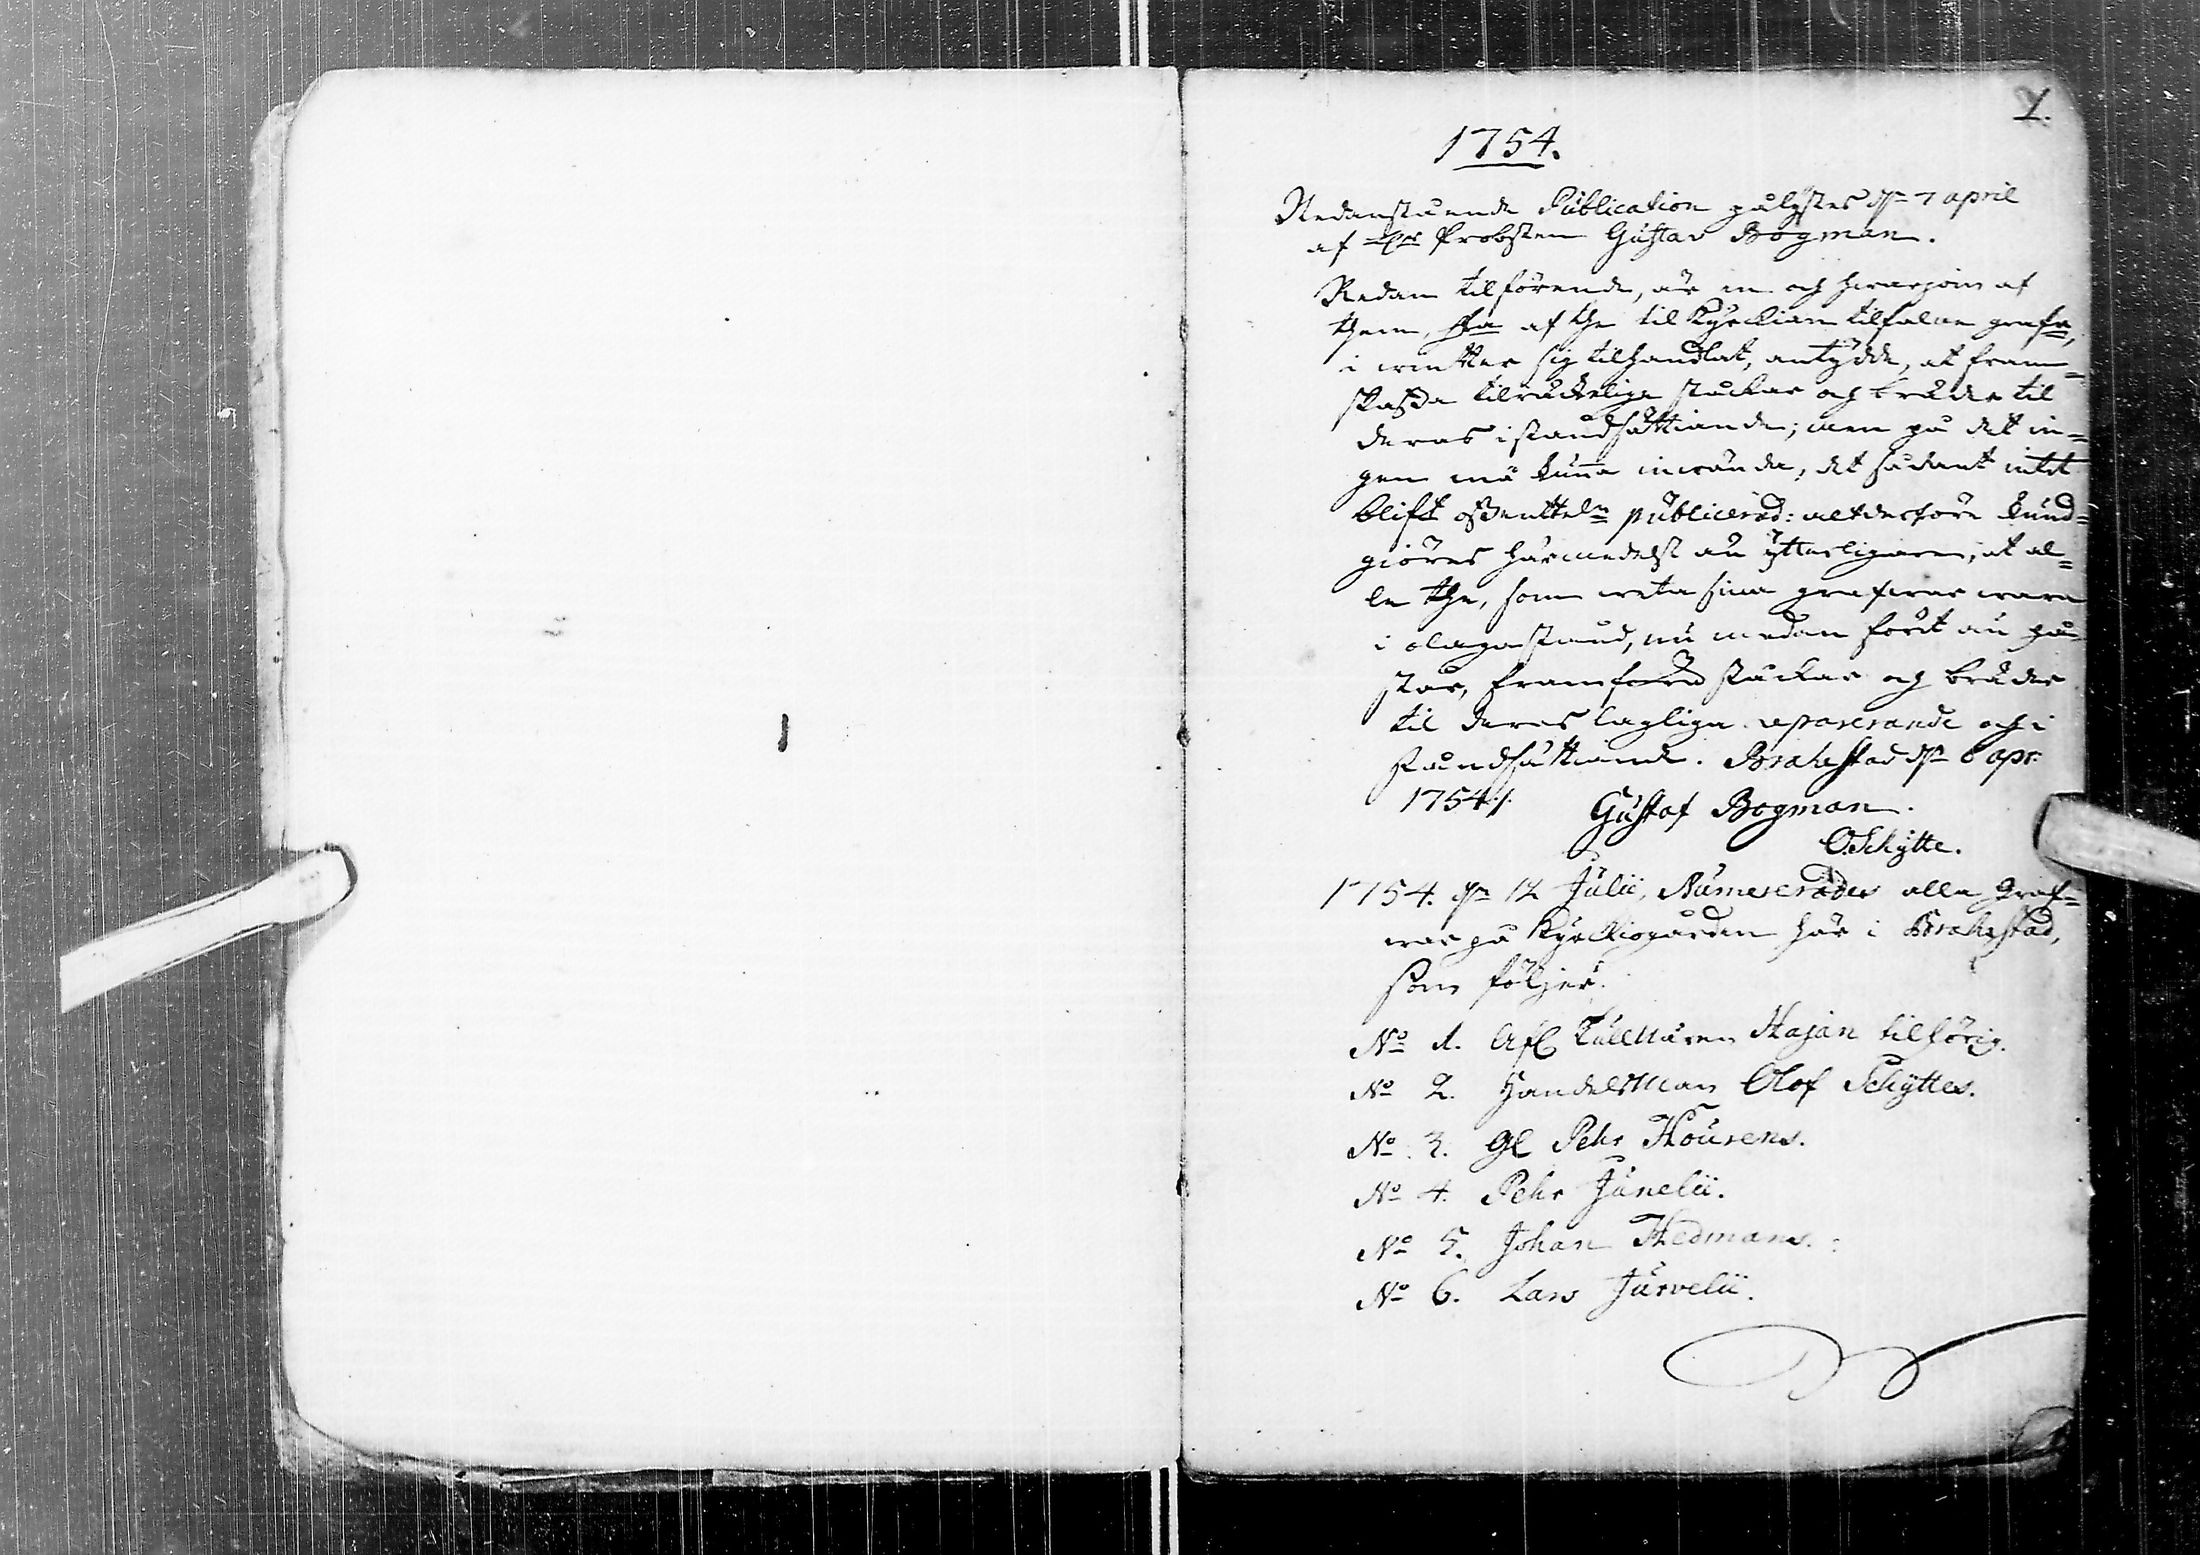 1.
1754.
Nedanstående Publication pålystes dn 7 april
af Hr Probsten Gustav Bogman.
Redan tilförende, är en och hvarjom af
them, som af the til Kyrkian tilfalne grafr,
i wintter sig tilhandlat, antydde, at fram=
skaffa tilräckeliga stockar och bräder til
deras iståndsättiande; men på det in=
gen må kunna inwända, det sådant intet
blifit offentteln publicerad: altderföre kund=
giöres härmedelst än ytterligare, at al=
la the, som weta sina grafwar wara
i olagastånd, nu medan föret än på=
står, framföra stäckar och bräder
til deras lagliga reparerande och i
ståndsättiande. Brahestad dn 6 apr:
1754./.
Gustaf Bogman.
O. Schytte.
1754. dn 12 Julii, Numererades alla Graf=
war på Kyrkiogården här i Brahestad,
som följer.
No 1. Afl Tullnären Hajan tilhörig.
No 2. Handelsman Olof Schyttes.
No 3. Gl Pehr Hourens.
No 4. Pehr Junelii.
No 5. Johan Hedmans.
No 6. Lars Järvelii.